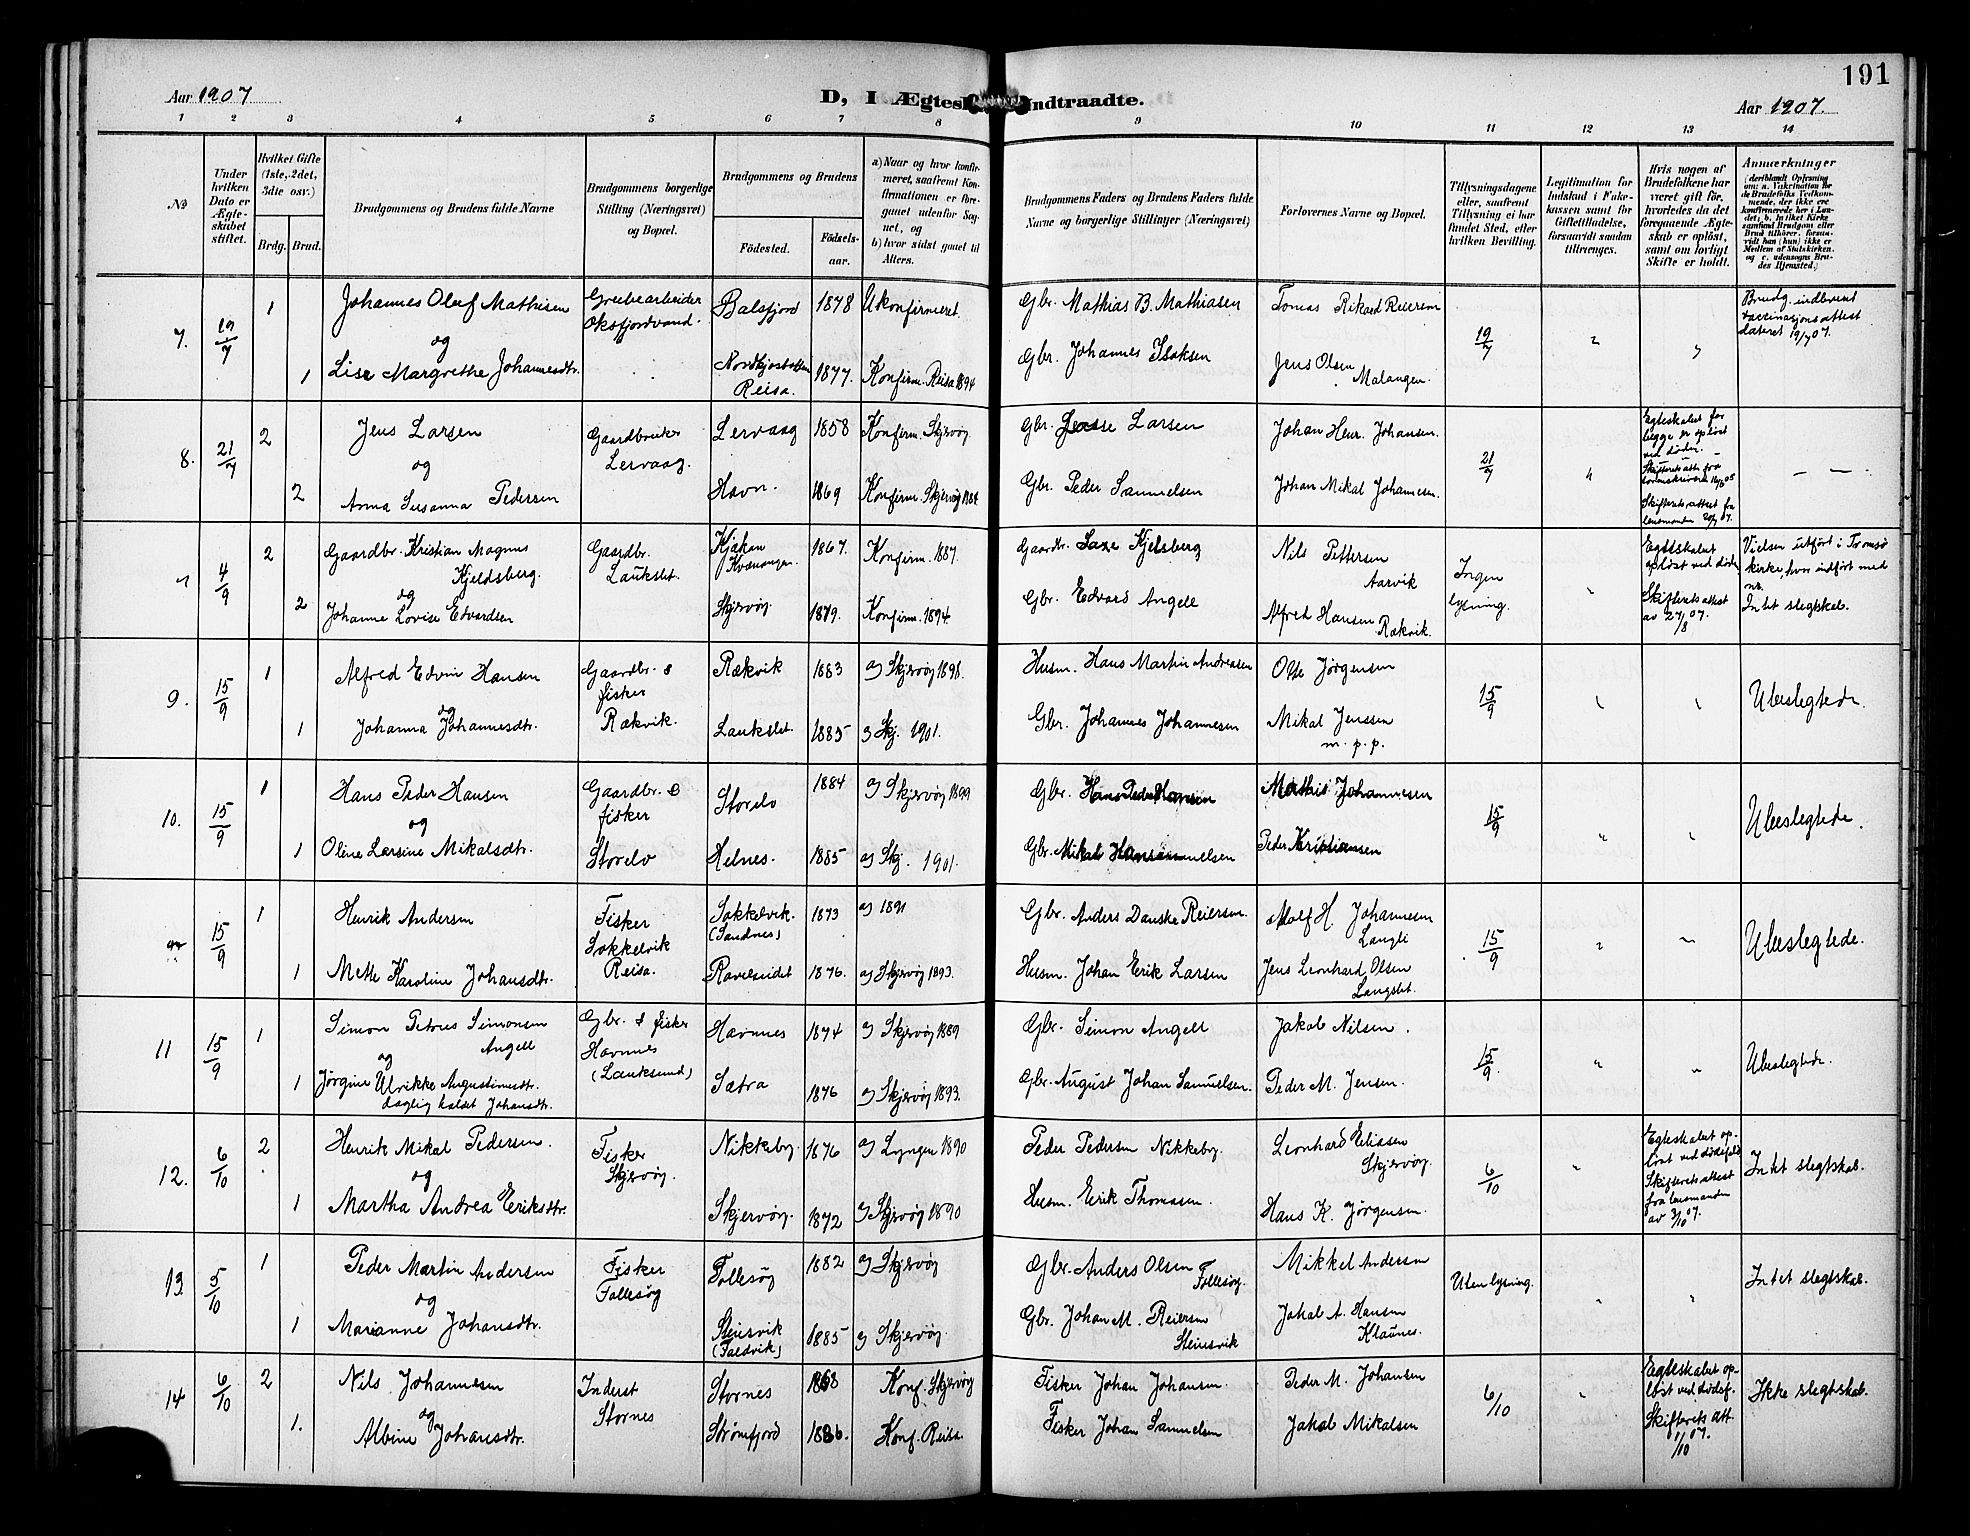 191
Aar 1907
D, I Ægtes
ndtraadte.
Aar 1907.
1 2 3 4 5 6 7 8 9 10 11 12 13 14
No
Under hvilken Dato er Ægteskabet stiftet.
Hvilket Gifte (1ste, 2det, 3die osv.)
Brdg. Brud.
Brudgommens og Brudens fulde Navne
Brudgommens borgerlige Stilling (Næringsvei) og Bopæl.
Brudgommens og Brudens
Fødested. Fødselsaar.
a) Naar og hvor konfirmeret, saafremt Konfirmationen er foregaaet udenfor Sognet, og
b) hvor sidst gaaet til Alters.
Brudgommens Faders og Brudens Faders fulde Navne og borgerlige Stillinger (Næringsvei)
Forlovernes Navne og Bopæl.
Tillysningsdagene eller, saafremt Tillysning ei har fundet Sted, efter hvilken Bevilling.
Legitimation for Indskud i Enkekassen samt for Giftetilladelse, forsaavidt saadan tiltrænges.
Hvis nogen af Brudefolkene har været gift før, hvorledes da det foregaaende Ægteskab er opløst, samt om lovligt Skifte er holdt.
Anmærkninger
7. 19/7 1 Johannes Oluf Mathisen Grubearbeider Balsfjord 1878 Ukonfirmeret. Gbr. Mathias B. Mathiasen Tomas Rikard Reiersen 19/7 Brudg. indleveret
og Oksfjordvand. vaccinasjonsattest
dateret 19/7 07.
1 Lise Margrethe Johannesdtr. Reisa. 1877. Konfirm. Reisa 1894 Gbr. Johannes Isaksen Jens Olsen
Malangen.
8. 21/7 2 Jens Larsen Gaardbruker Lervaag 1858 Konfirm. Skjervøy Gbr. Lasse Larsen Johan Henr. Johansen. 21/7 Egteskabet
og Lervaag.
ved døden.
2 Anna Susanna Pedersen Havn. 1869 Konfirm. Skjervøy Gbr. Peder Samuelsen Johan Mikal Johannesen. Skifteretsattest fra
lensmanden
7 4/9 2 Gaardbr. Kristian Magnus Gaardbr. 1867. Konfirm. 1887. Gaardbr. Kjelsberg Nils Pettersen Ingen Egteskabet Vielsen utført i Tromsø
Kjeldsberg. Laukslet. Kvænangen. Aarvik lysning. opløst ved døden, kirke, hvor indført med
og no.
2 Johanne Lovise Edvardsen Skjervøy 1879. Konfirm. 1894. Gbr. Edvard Angell Alfred Hansen Skifteretsattest Intet slegtskab.
Rækvik. av 27/8 07.
9. 15/9 1 Alfred Edvin Hansen Gaardbr. & Rækvik 1883 a) Skjervøy 1898. Husm. Hans Martin Andreasen Jørgensen 15/9 Ubeslegtede.
og fisker
1 Johanna Johannesdtr. Rækvik. Laukslet. 1885 Skj. 1901. Gbr. Johannes Johannesen Mikal Jenssen
m. p. p.
10. 15/9 1 Hans Peder Hansen Gaardbr. & Storelv 1884 a) Skjervøy 1899 Gbr. Hans Peder Hansen Mathis Johannesen 15/9 Ubeslegtede.
og fisker
1 Oline Larsine Mikalsdtr. Storelv Helnes. 1885 a) Skj. 1901. Gbr. Mikal Peder Kristiansen
15/9 1 Henrik Andersen Fisker Sokkelvik. 1873 a) 1891 Gbr. Anders Danske Reiersen. Johannesen 15/9 Ubeslegtede.
Sokkelvik (Sandnes)
1 Mette Karoline Johansdtr. Reisa. Ravelseidet 1876. a) Skjervøy 1893. Husm. Johan Erik Larsen Jens Leonhard Olsen
Langslet.
11 15/9 1 Simon Petrus Simonsen Gbr. & fisker Havnnes 1874 a) Skjervøy 1889 Gbr. Simon Angell Jakob Nilsen. 15/9 Ubeslegtede.
Angell Havnnes
og (Lauksund)
1 Jørgine Ulrikke Augustinusdtr. Sætra 1876 a) Skjervøy 1893. Gbr. August Johan Samuelsen. Peder M. Jensen.
daglig kaldet Johansdtr.
12. 6/10 2 Henrik Mikal Pedersen. Fisker Nikkeby 1876 a) Lyngen 1890 Peder Pedersen Nikkeby. Leonhard Eliasen 6/10 Egteskabet op- Intet slegtskab.
og Skjervøy. Skjervøy. løst ved dødsfald
Skifteretsattest
1 Martha Andrea Eriksdtr. Skjervøy. 1872 Skjervøy 1890 Husm. Erik Thomassen. Hans K. Jørgensen. fra lensmanden
av 3/10 07.
13. 5/10 1 Peder Martin Andersen Fisker Follesøy 1882 a) Skjervøy Gbr. Anders Olsen Mikkel Andersen Uten lysning. Intet slegtskab.
og Follesøy Follesøy.
1 Marianne Johansdtr. Steinsvik 1885 Skjervøy Gbr. Johan M. Reiersen Jakob A. Hansen
Steinsvik Klaunes.
14 6/10 2 Nils Johannesen Inderst Stornes 1868 Konf. Skjervøy Fisker Johan Johansen. Peder M. Johansen 6/10 Egteskabet op- Ikke slegtskab.
og Stornes løst ved dødsf.
1. Albine Johansdtr. Strømfjord 1886. Konf. Reisa Fisker Johan Samuelsen Jakob Mikalsen Skifterets att.
1/10 07.